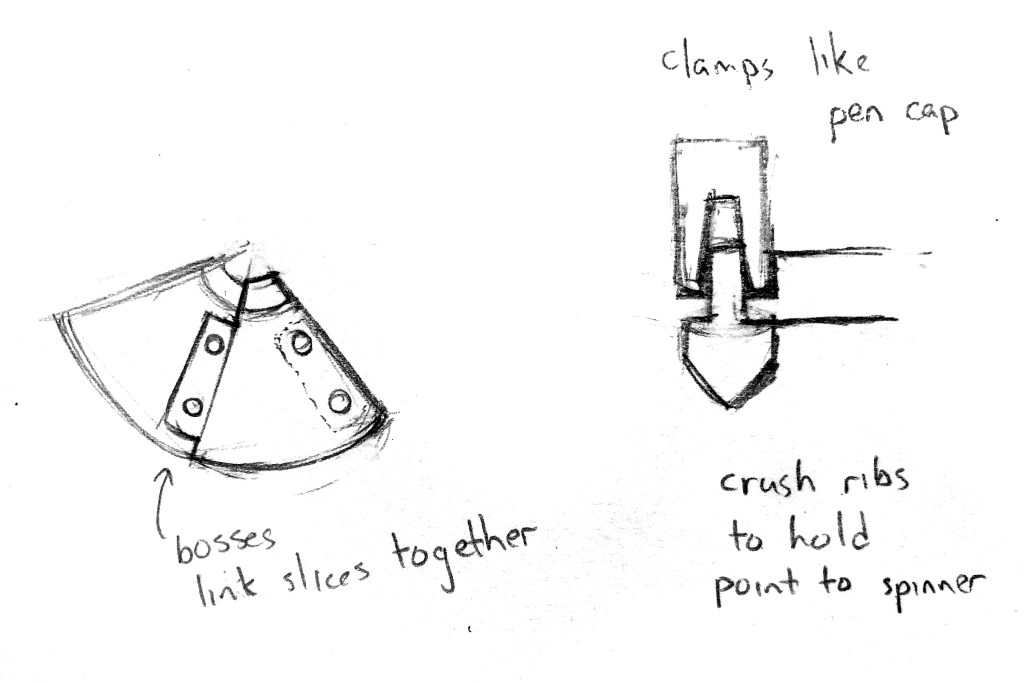 clamps like
pen cap
bosses
link slices together
crush ribs
to hold
point to spinner